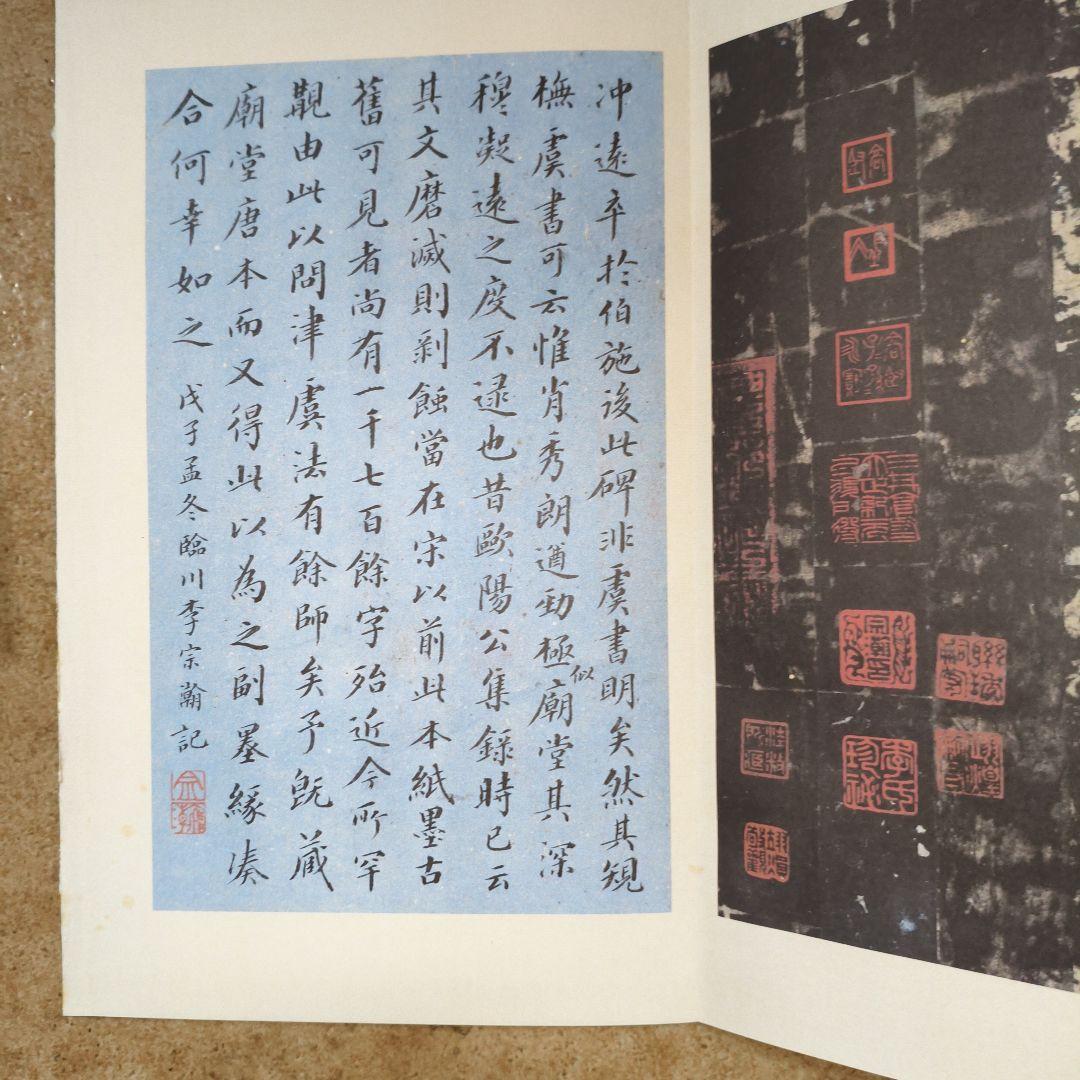 冲遠卒於伯施後此碑非虞書明矣然其規
橅虞書可云惟肖秀朗遒勁極似廟堂其深
穆凝遠之度不逮也昔歐陽公集錄時已云
其文磨滅則剥蝕當在宋以前此本紙墨古
舊可見者尚有一千七百餘字殆近今所罕
覯由此以問津虞法有餘師矣予既藏
廟堂唐本而又得此以為之副墨緣湊
合何幸如之 戊子孟冬臨川李宗瀚記